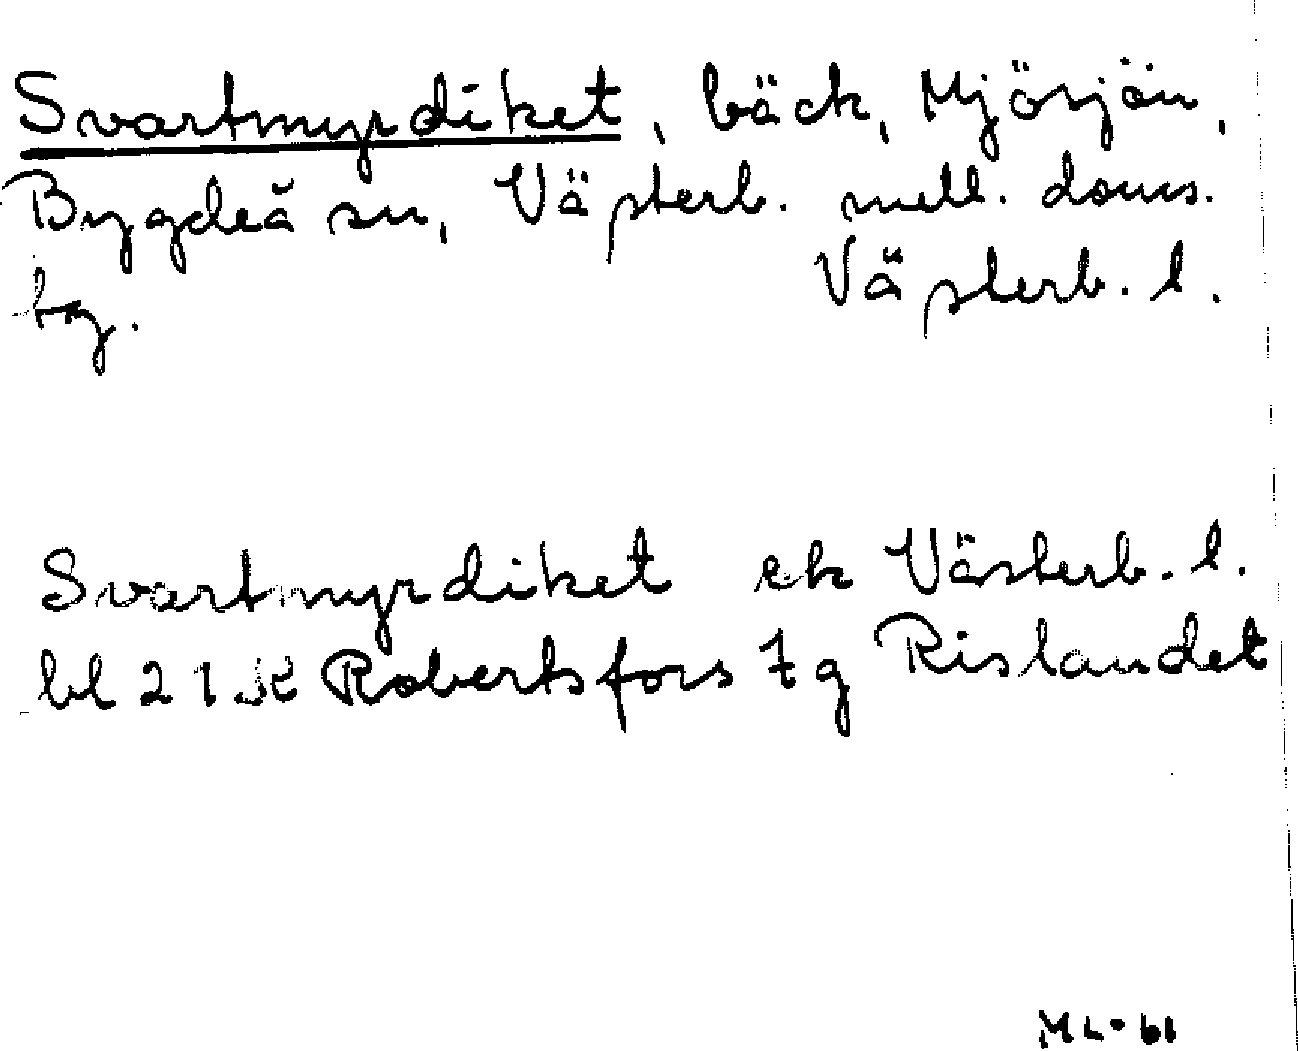 Svartmyrdiket, bäck, Mjösjön,
Bygdeå sn, Västerb. mell. doms.
tg. Västerb. l.
Svartmyrdiket ek Västerb. l.
bl 21K Robertsfors 7g Rislandet
ML-61